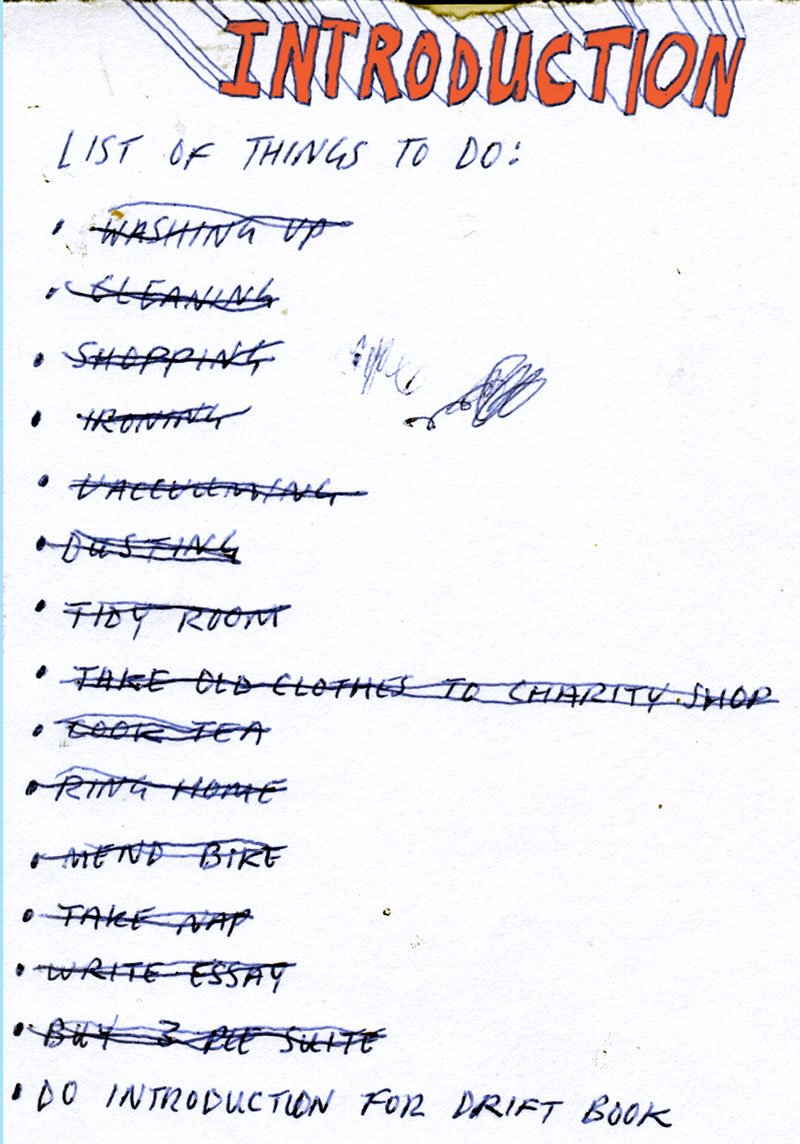 INTRODUCTION
LIST OF THINGS TO DO:
• WASHING UP
• CLEANING
• SHOPPING
• IRONING
• VACCUUMING
• DUSTING
• TIDY ROOM
• TAKE OLD CLOTHES TO CHARITY SHOP
• COOK TEA
• RING HOME
• MEND BIKE
• TAKE NAP
• WRITE ESSAY
• BUY 3 PCE SUITE
• DO INTRODUCTION FOR DRIFT BOOK